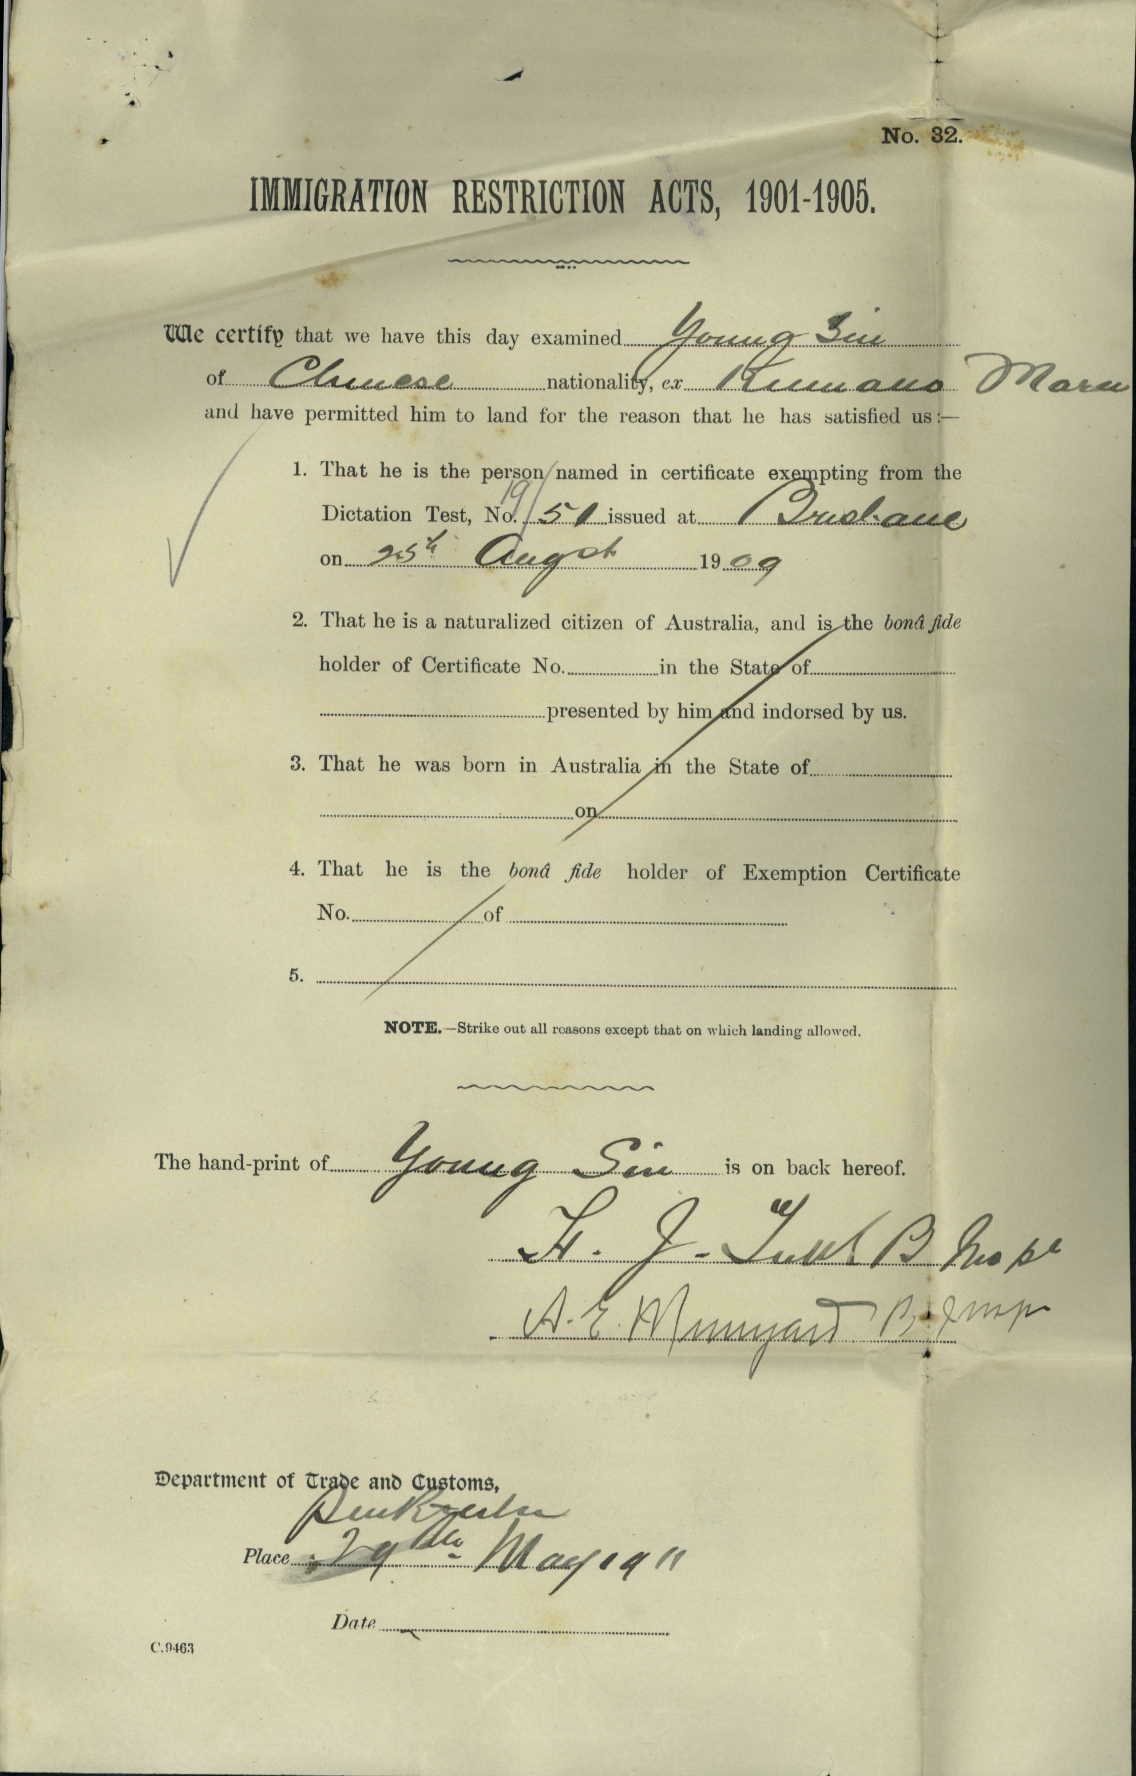 No. 32.
IMMIGRATION RESTRICTION ACTS, 1901-1905.
We certify that we have this day examined Young Sin
of Chinese nationality, ex Kumano Maru
and have permitted him to land for the reason that he has satisfied us :—
1. That he is the person named in certificate exempting from the
19/
Dictation Test, No. 51 issued at Brisbane
on 25th Augst 1909
2. That he is a naturalized citizen of Australia, and is the bonâ fide
holder of Certificate No. in the State of
presented by him and indorsed by us.
3. That he was born in Australia in the State of
on
4. That he is the bonâ fide holder of Exemption Certificate
No. of
5.
NOTE.—Strike out all reasons except that on which landing allowed.
The hand-print of Young Sin is on back hereof.
H. J. B Insp
A. E. Munyard B. Insp
Department of Trade and Customs,
Place 29th May 1911
Date
C.9463